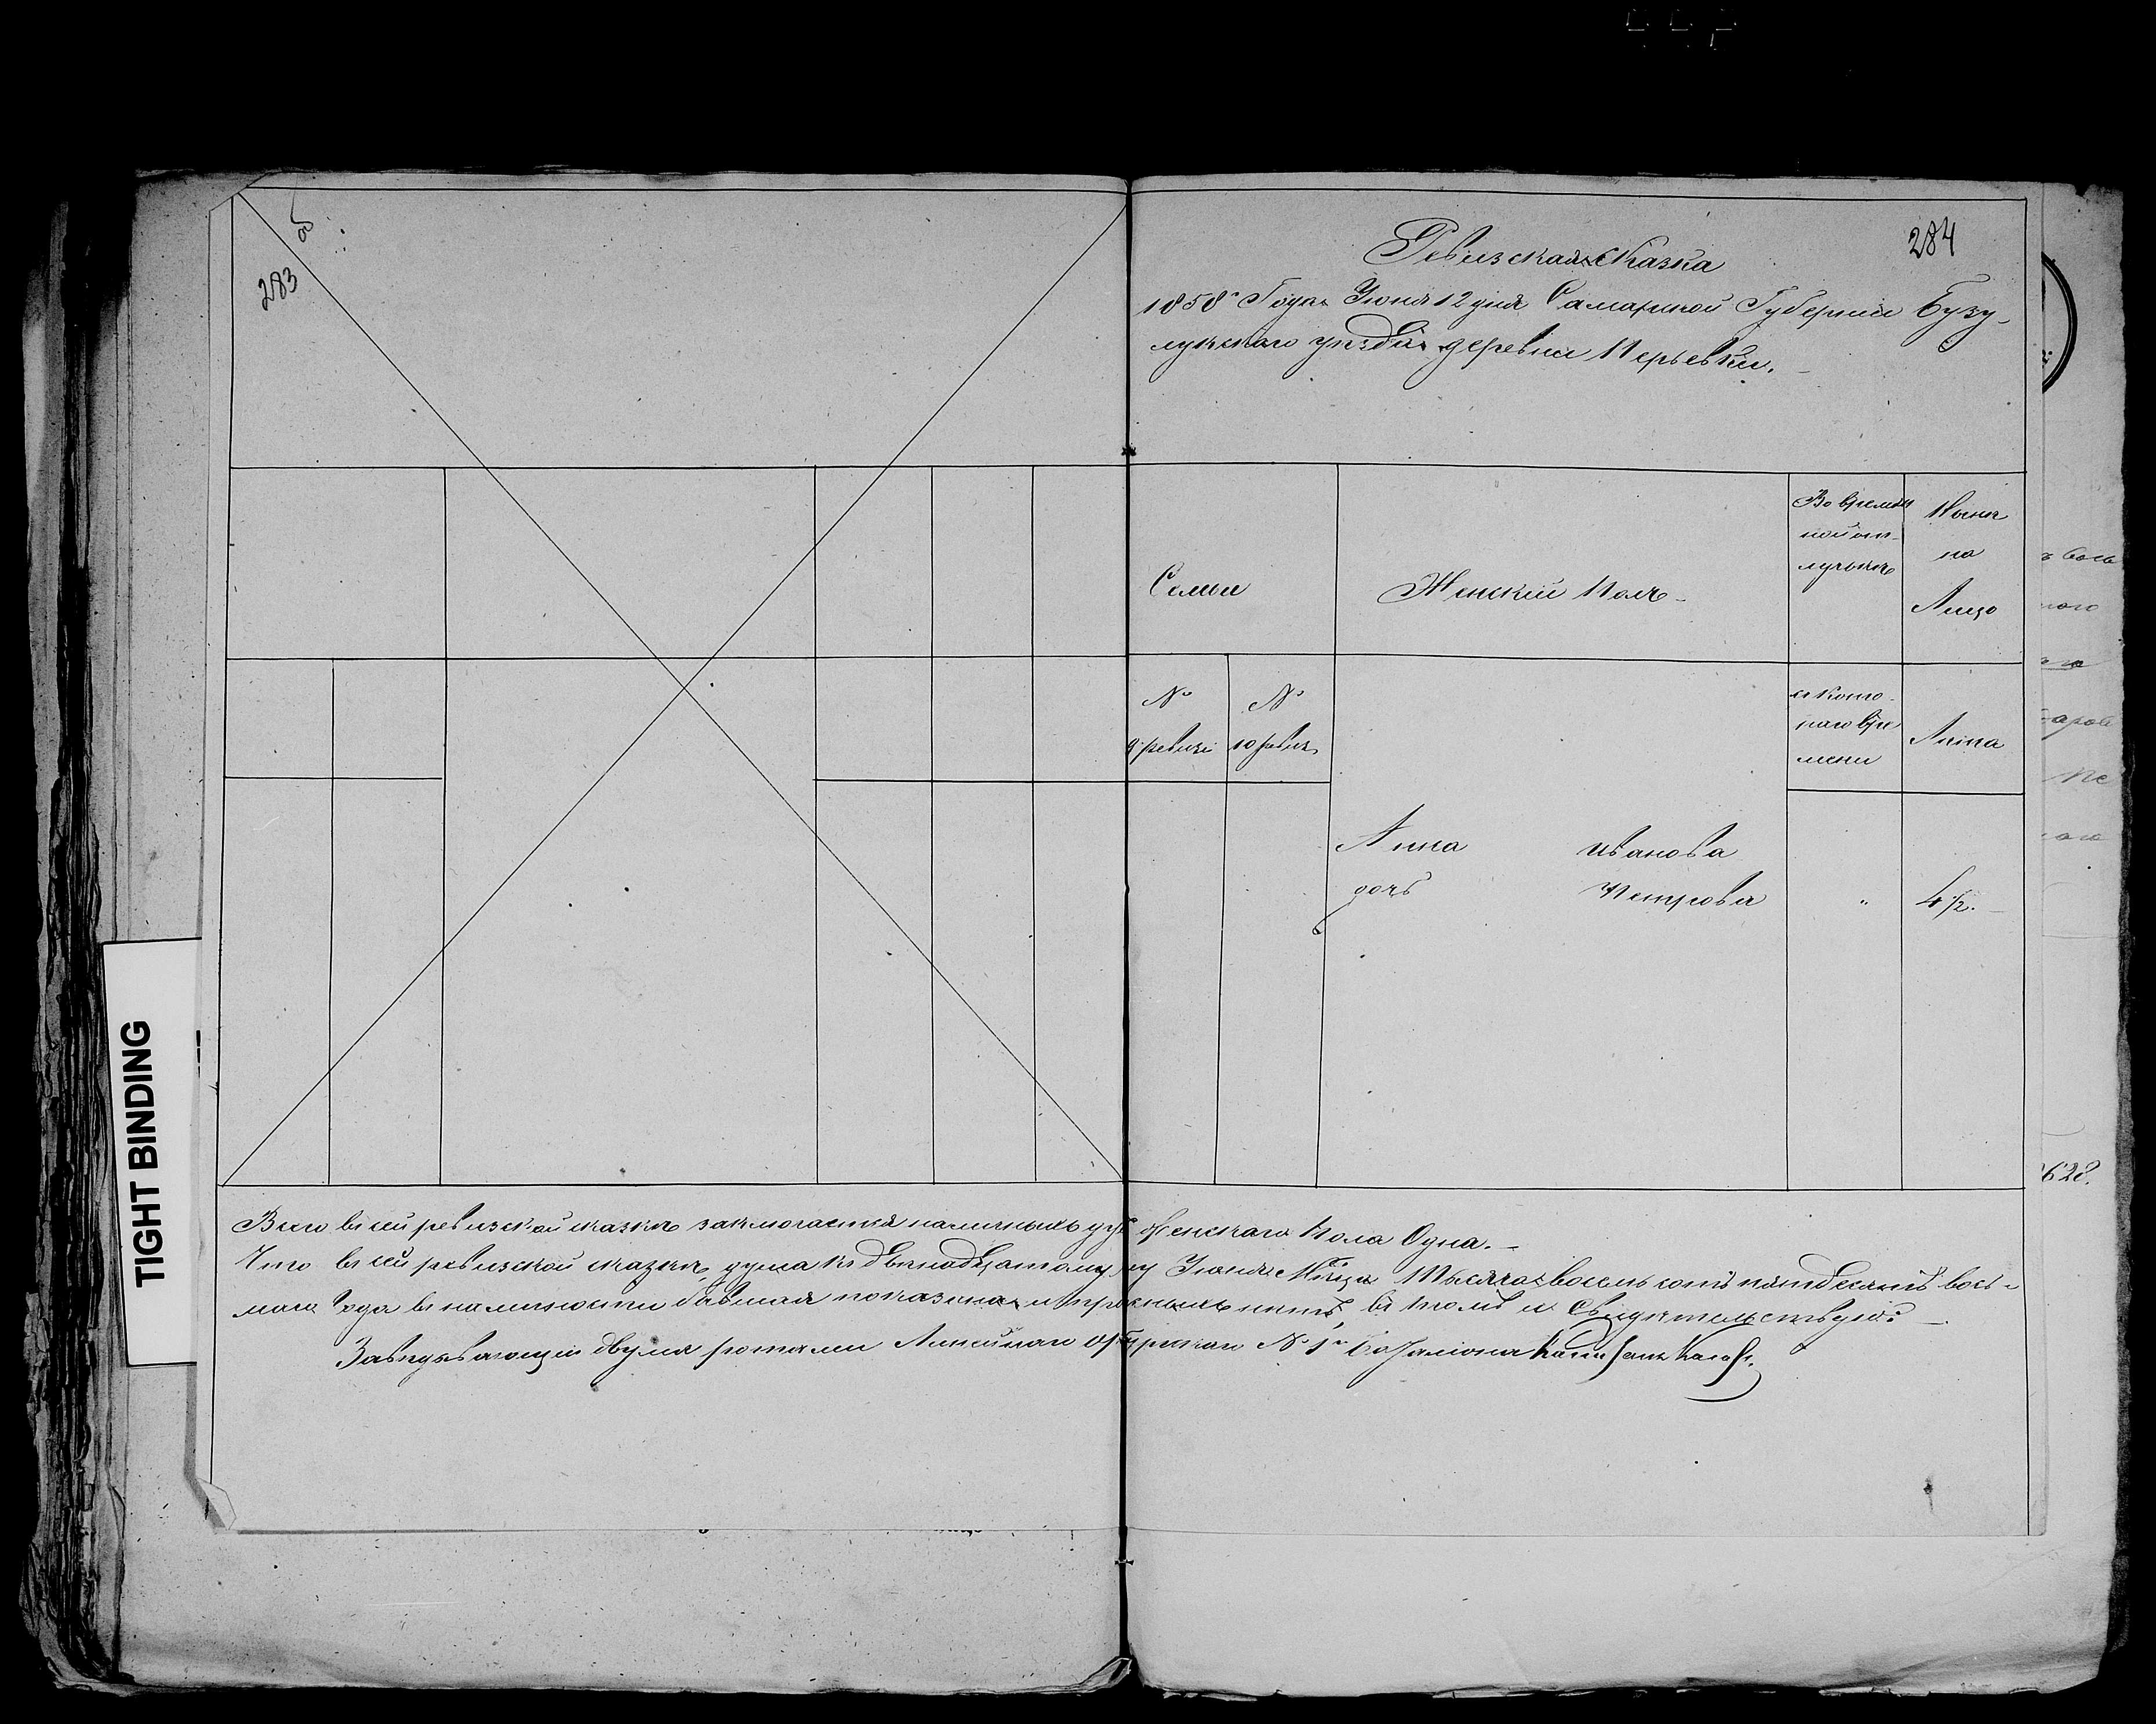 283
об
284
Ревизская сказка
1858 Года Іюня 12 дня Самарской Губерніи Бузу-
лукскаго уѣзда деревни Перьевки.
Семьи
Женскій Полъ
Во времен
ной от-
лучкѣ
Ныне
на
Лицо
№
9 ревизі
№
10 ревиз
съ кото-
раго вре
мени
Лѣта
Анна Иванова
дочь Петрова „ 4 ½.
Всего в сей ревизской сказке заключается наличныхъ душъ Женскаго Пола Одна.
Что в сей ревизской сказкѣ душа къ двѣнадцатому Іюня Мѣсяца Тысяча восемь сотъ пятдесятъ вось-
маго Года в наличности бывшая показана и прописныхъ нѣтъ, въ томъ и Свидѣтельствую:
Завѣдывающій двумя ротами Линейнаго Оренбургскаго № 1го Баталіона Капитанъ
TIGHT BINDING
628.